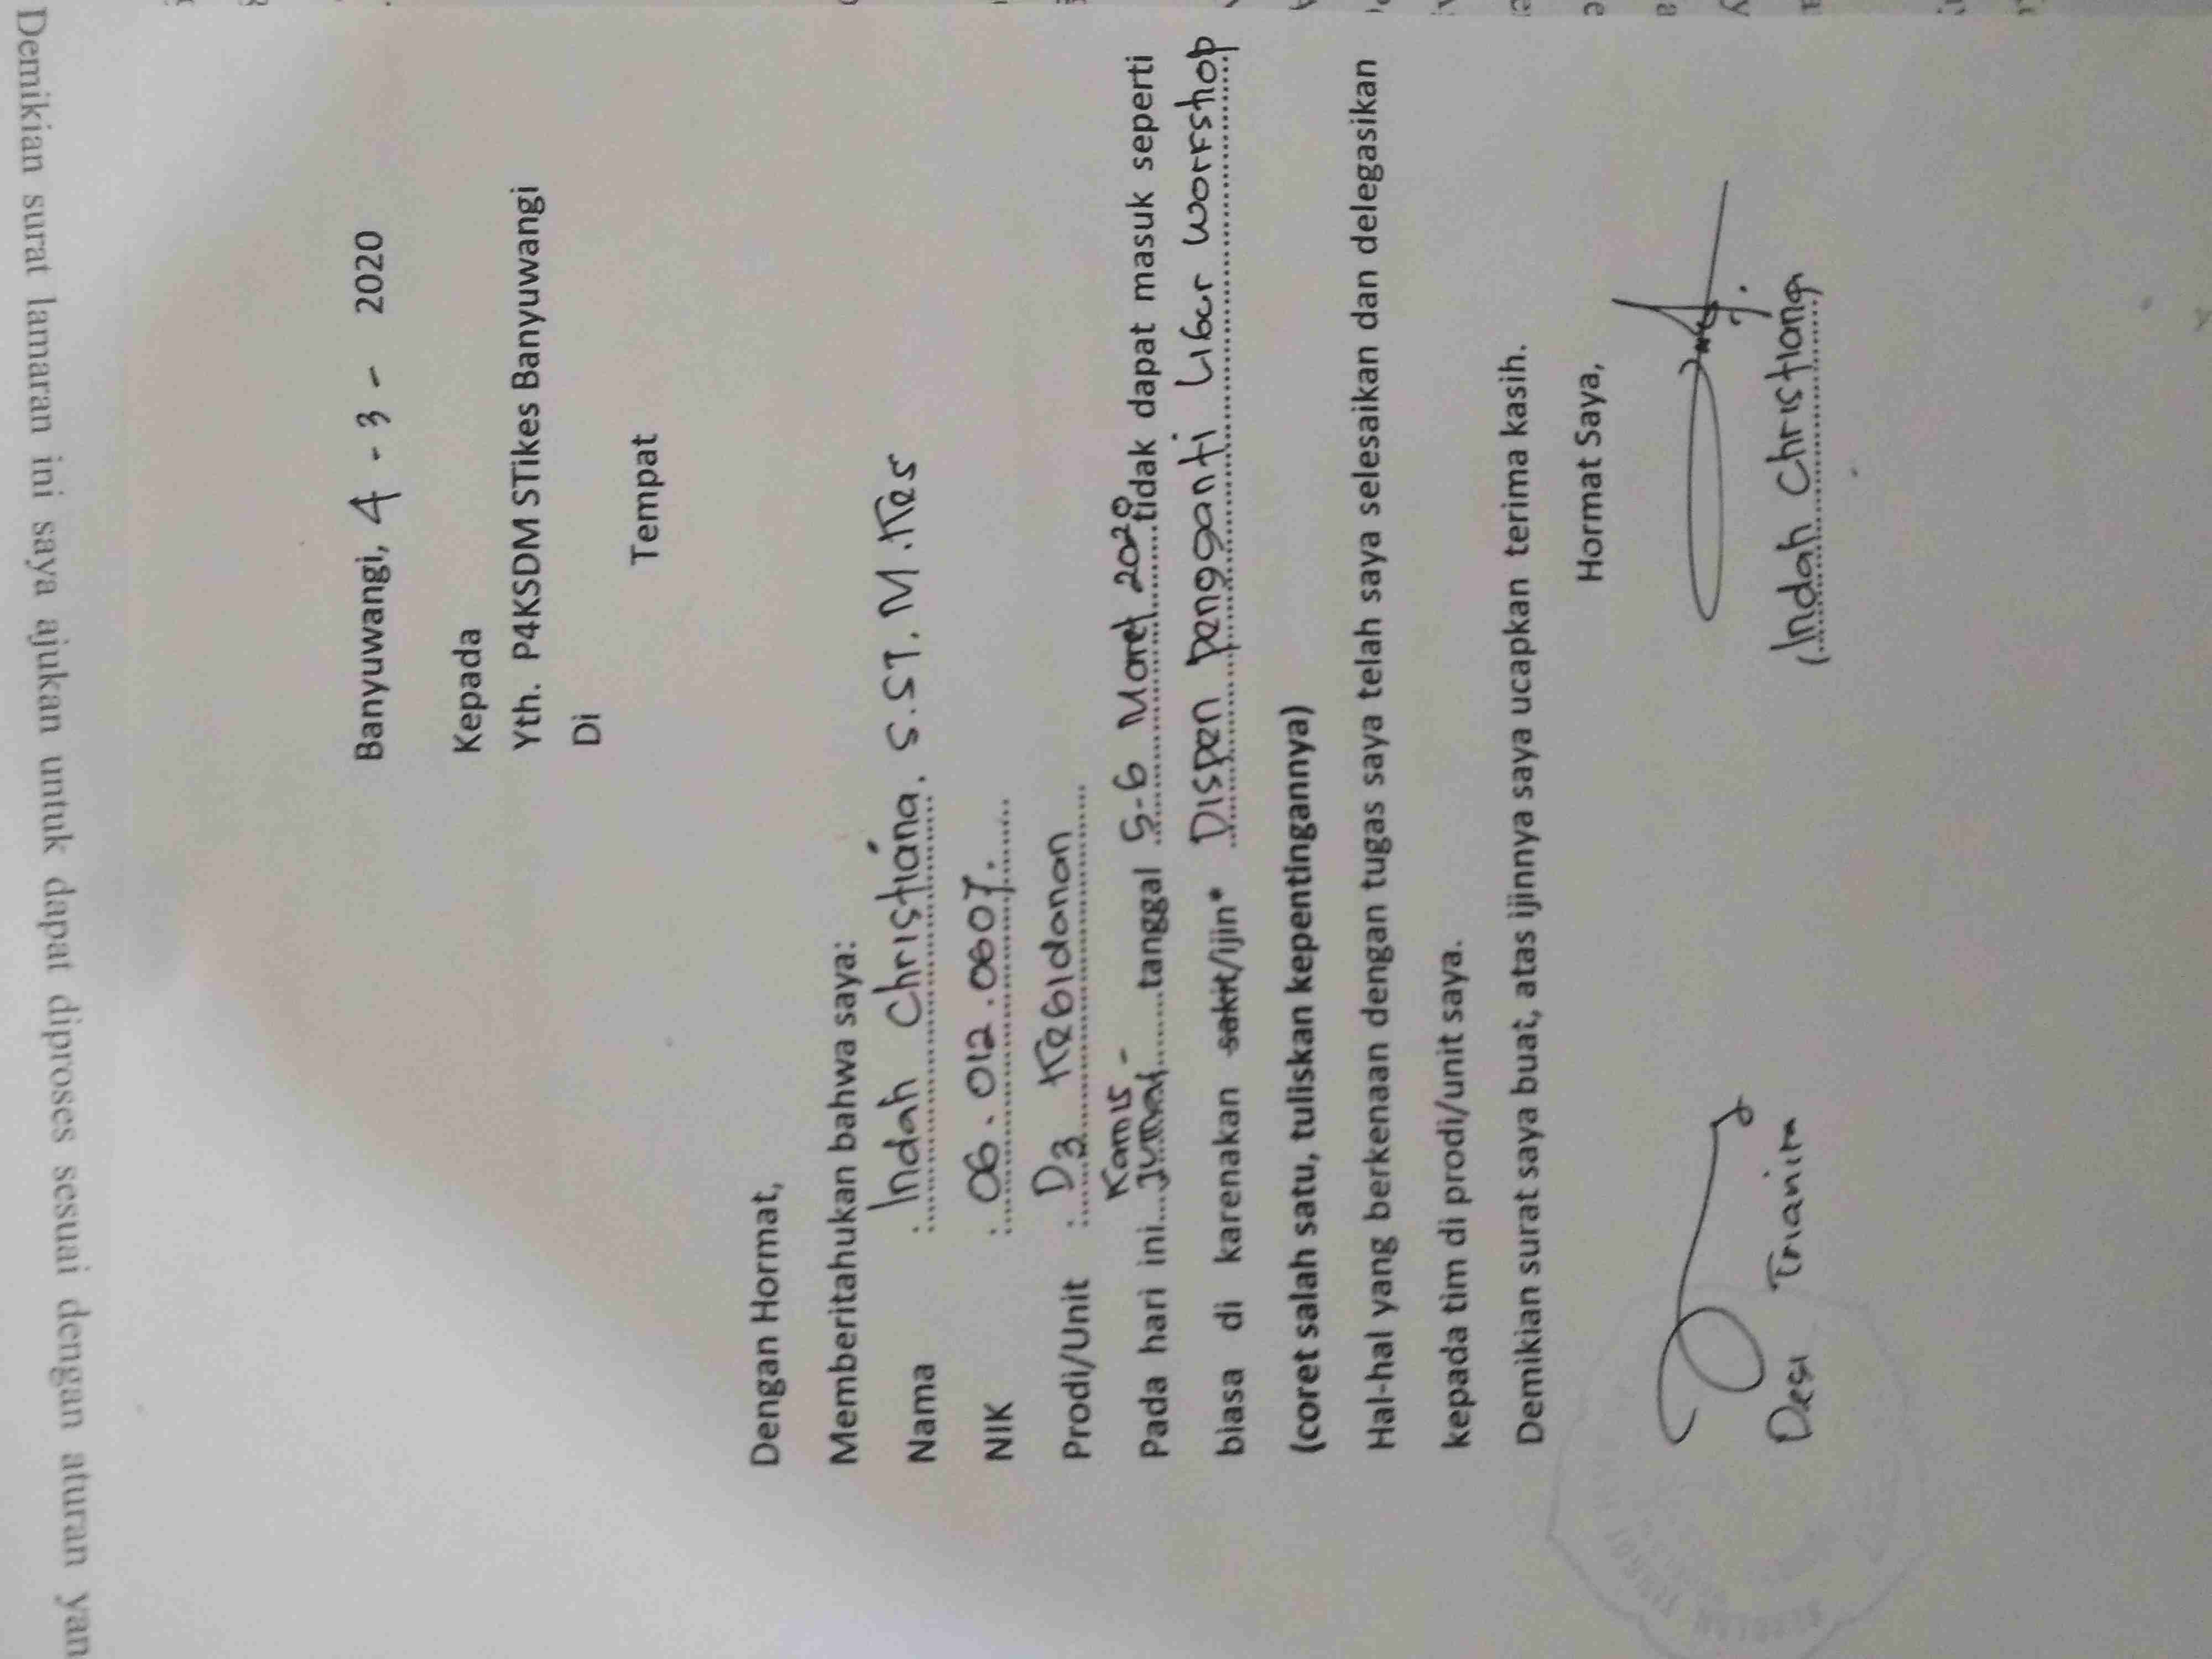 Demikian surat lamaran ini saya ajukan untuk dapat diproses sesuai dengan aturan yan
Banyuwangi, 4 - 3 - 2020
Kepada
Yth. P4KSDM STikes Banyuwangi
Di
Tempat
Dengan Hormat,
Memberitahukan bahwa saya:
Nama : Indah Christiana, S.ST, M.Kes
NIK : 06.012.0607.
Prodi/Unit : D3 Kebidanan
Kamis -
Pada hari ini...Jumat.........tanggal 5-6 Maret 2020 tidak dapat masuk seperti
biasa di karenakan sakit/ijin* Dispen pengganti Libur Workshop
(coret salah satu, tuliskan kepentingannya)
Hal-hal yang berkenaan dengan tugas saya telah saya selesaikan dan delegasikan
kepada tim di prodi/unit saya.
Demikian surat saya buat, atas ijinnya saya ucapkan terima kasih.
Hormat Saya,
Desi Trianita
(Indah Christiana)